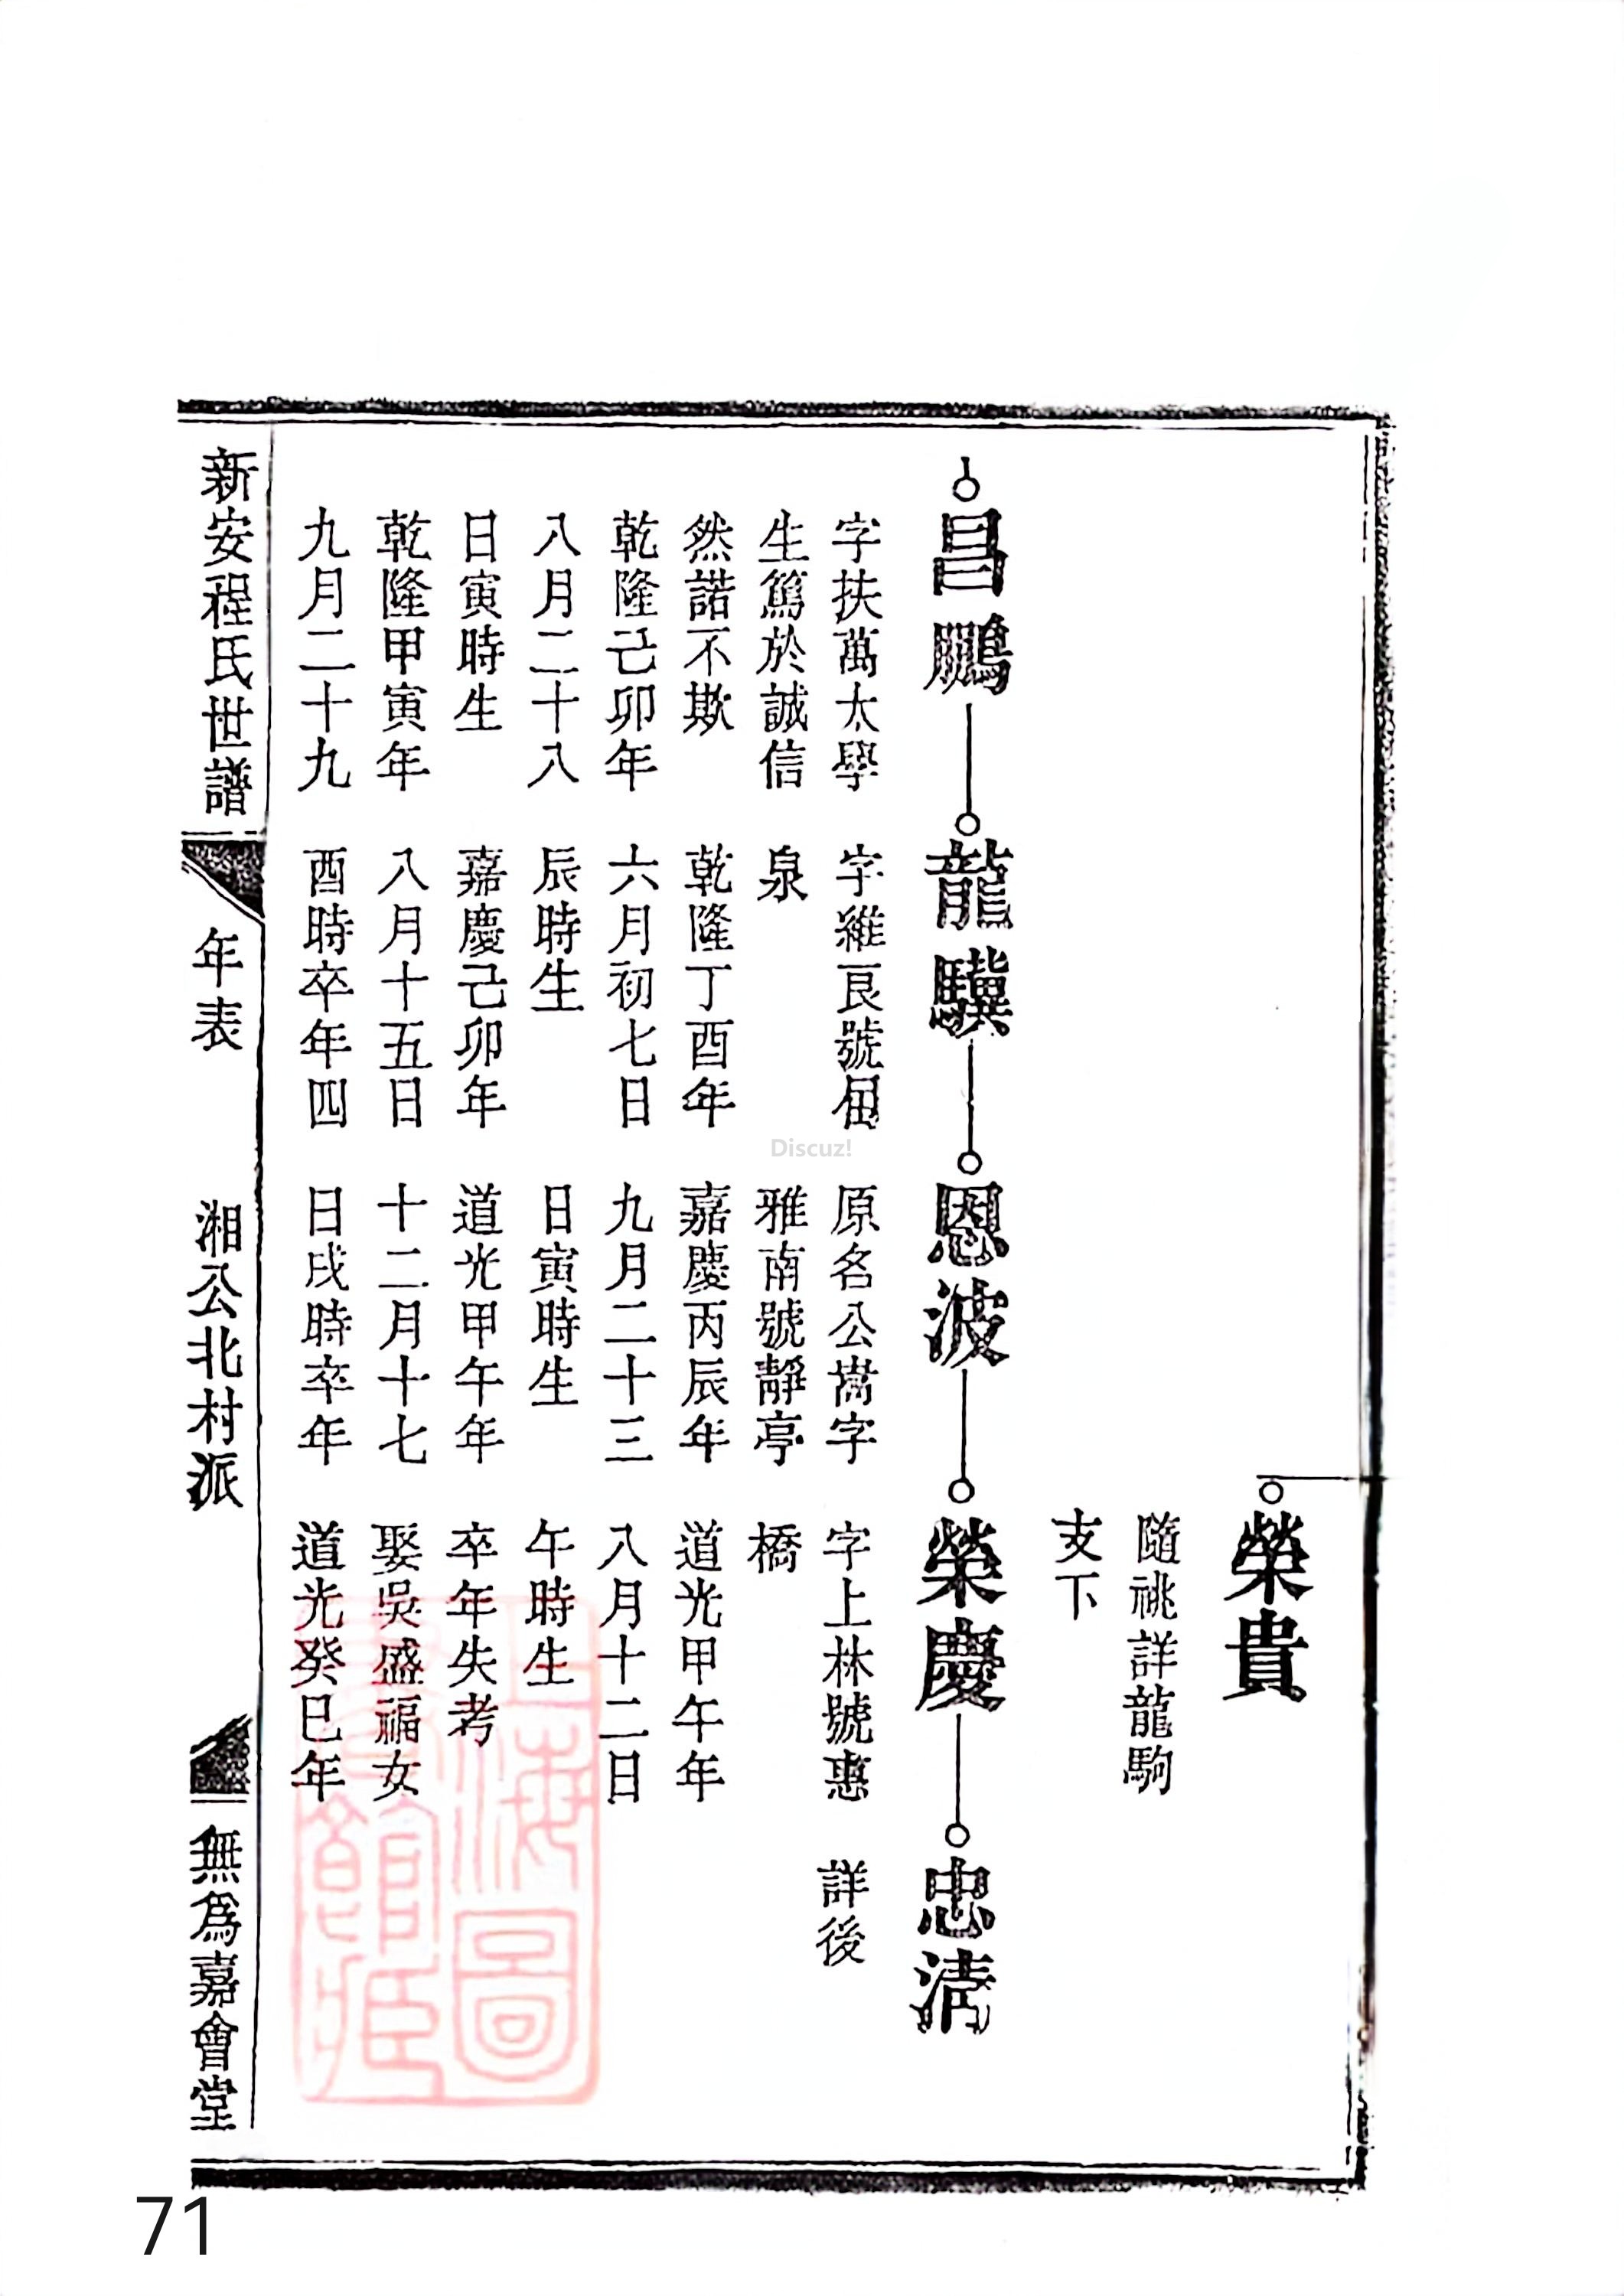 榮貴
隨祧詳龍駒
支下
昌鵬
字扶萬太學
生篤於誠信
然諾不欺
乾隆己卯年
八月二十八
日寅時生
乾隆甲寅年
九月二十九
龍驥
字維良號屇
泉
乾隆丁酉年
六月初七日
辰時生
嘉慶己卯年
八月十五日
酉時卒年四
恩波
原名公嵩字
雅南號靜亭
嘉慶丙辰年
九月二十三
日寅時生
道光甲午年
十二月十七
日戌時卒年
榮慶
字上林號惠
橋
道光甲午年
八月十二日
午時生
卒年失考
娶吳盛福女
道光癸巳年
忠淸
詳後
新安程氏世譜
年表
湘公北村派
無爲嘉會堂
上海圖
書館藏
Discuz!
71